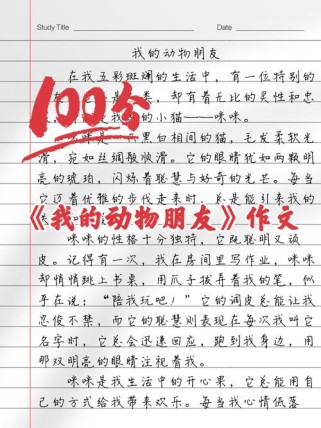 Study Title
Date
我的动物朋友
在我五彩斑斓的生活中，有一位特别的
类，却有着无比的灵性和忠
的小猫——咪咪。
黑白相间的猫，毛发柔软光
滑，宛如丝绸般顺滑。它的眼睛犹如两颗明
亮的琥珀，闪烁着聪慧与好奇的光芒。每当它
迈着优雅的步伐走来时，总是能引来我的
100个
《我的动物朋友》作文
咪咪的性格十分独特，它既聪明又顽
皮。记得有一次，我在房间里写作业，咪咪
却悄悄跳上书桌，用爪子拨弄着我的笔，似
乎在说：“陪我玩吧！”它的调皮总能让我
忍俊不禁，而它的聪慧则表现在每次我叫它
名字时，它总会迅速回应，跑到我身边，用
那双明亮的眼睛注视着我。
咪咪是我生活中的开心果，它总能用自
己的方式给我带来欢乐。每当我心情低落